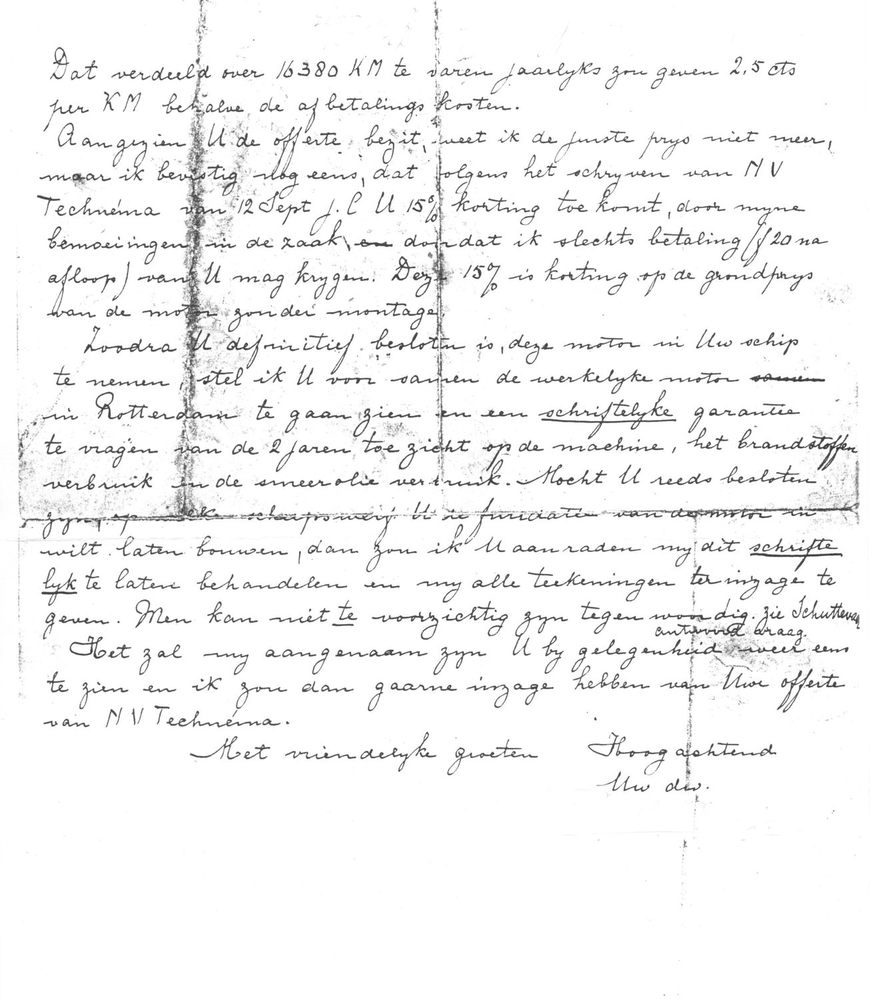 Dat verdeeld over 16380 KM te varen jaarlyks zou geven 2,5 cts
per KM behalve de afbetalings kosten.
Aangezien U de offerte bezit, weet ik de juiste prys niet meer,
maar ik bevestig nog eens, dat volgens het schryven van N V
Technéma van 12 Sept j.l U 15% korting toe komt, door myne
bemoeiingen in de zaak, en doordat ik slechts betaling (f 20 na
afloop) van U mag krygen. Deze 15% is korting op de grondprys
van de motor zonder montage.
Zoodra U definitief besloten is, deze motor in Uw schip
te nemen, stel ik U voor samen de werkelyke motor samen
in Rotterdam te gaan zien en een schriftelyke garantie
te vragen van de 2 jaren toezicht op de machine, het brandstoffen
verbruik en de smeerolie verbruik. Mocht U reeds besloten
zyn, op welke scheepswerf U de fundatie van de motor in
wilt laten bouwen, dan zou ik U aanraden my dit schrifte
lyk te laten behandelen en my alle teekeningen ter inzage te
geven. Men kan niet te voorzichtig zyn tegen woordig. zie Schuttevaer
antwoord araag.
Het zal my aangenaam zyn U by gelegenheid weer eens
te zien en ik zou dan gaarne inzage hebben van Uwe offerte
van N V Technéma.
Met vriendelyke groeten Hoogachtend
Uw dw.